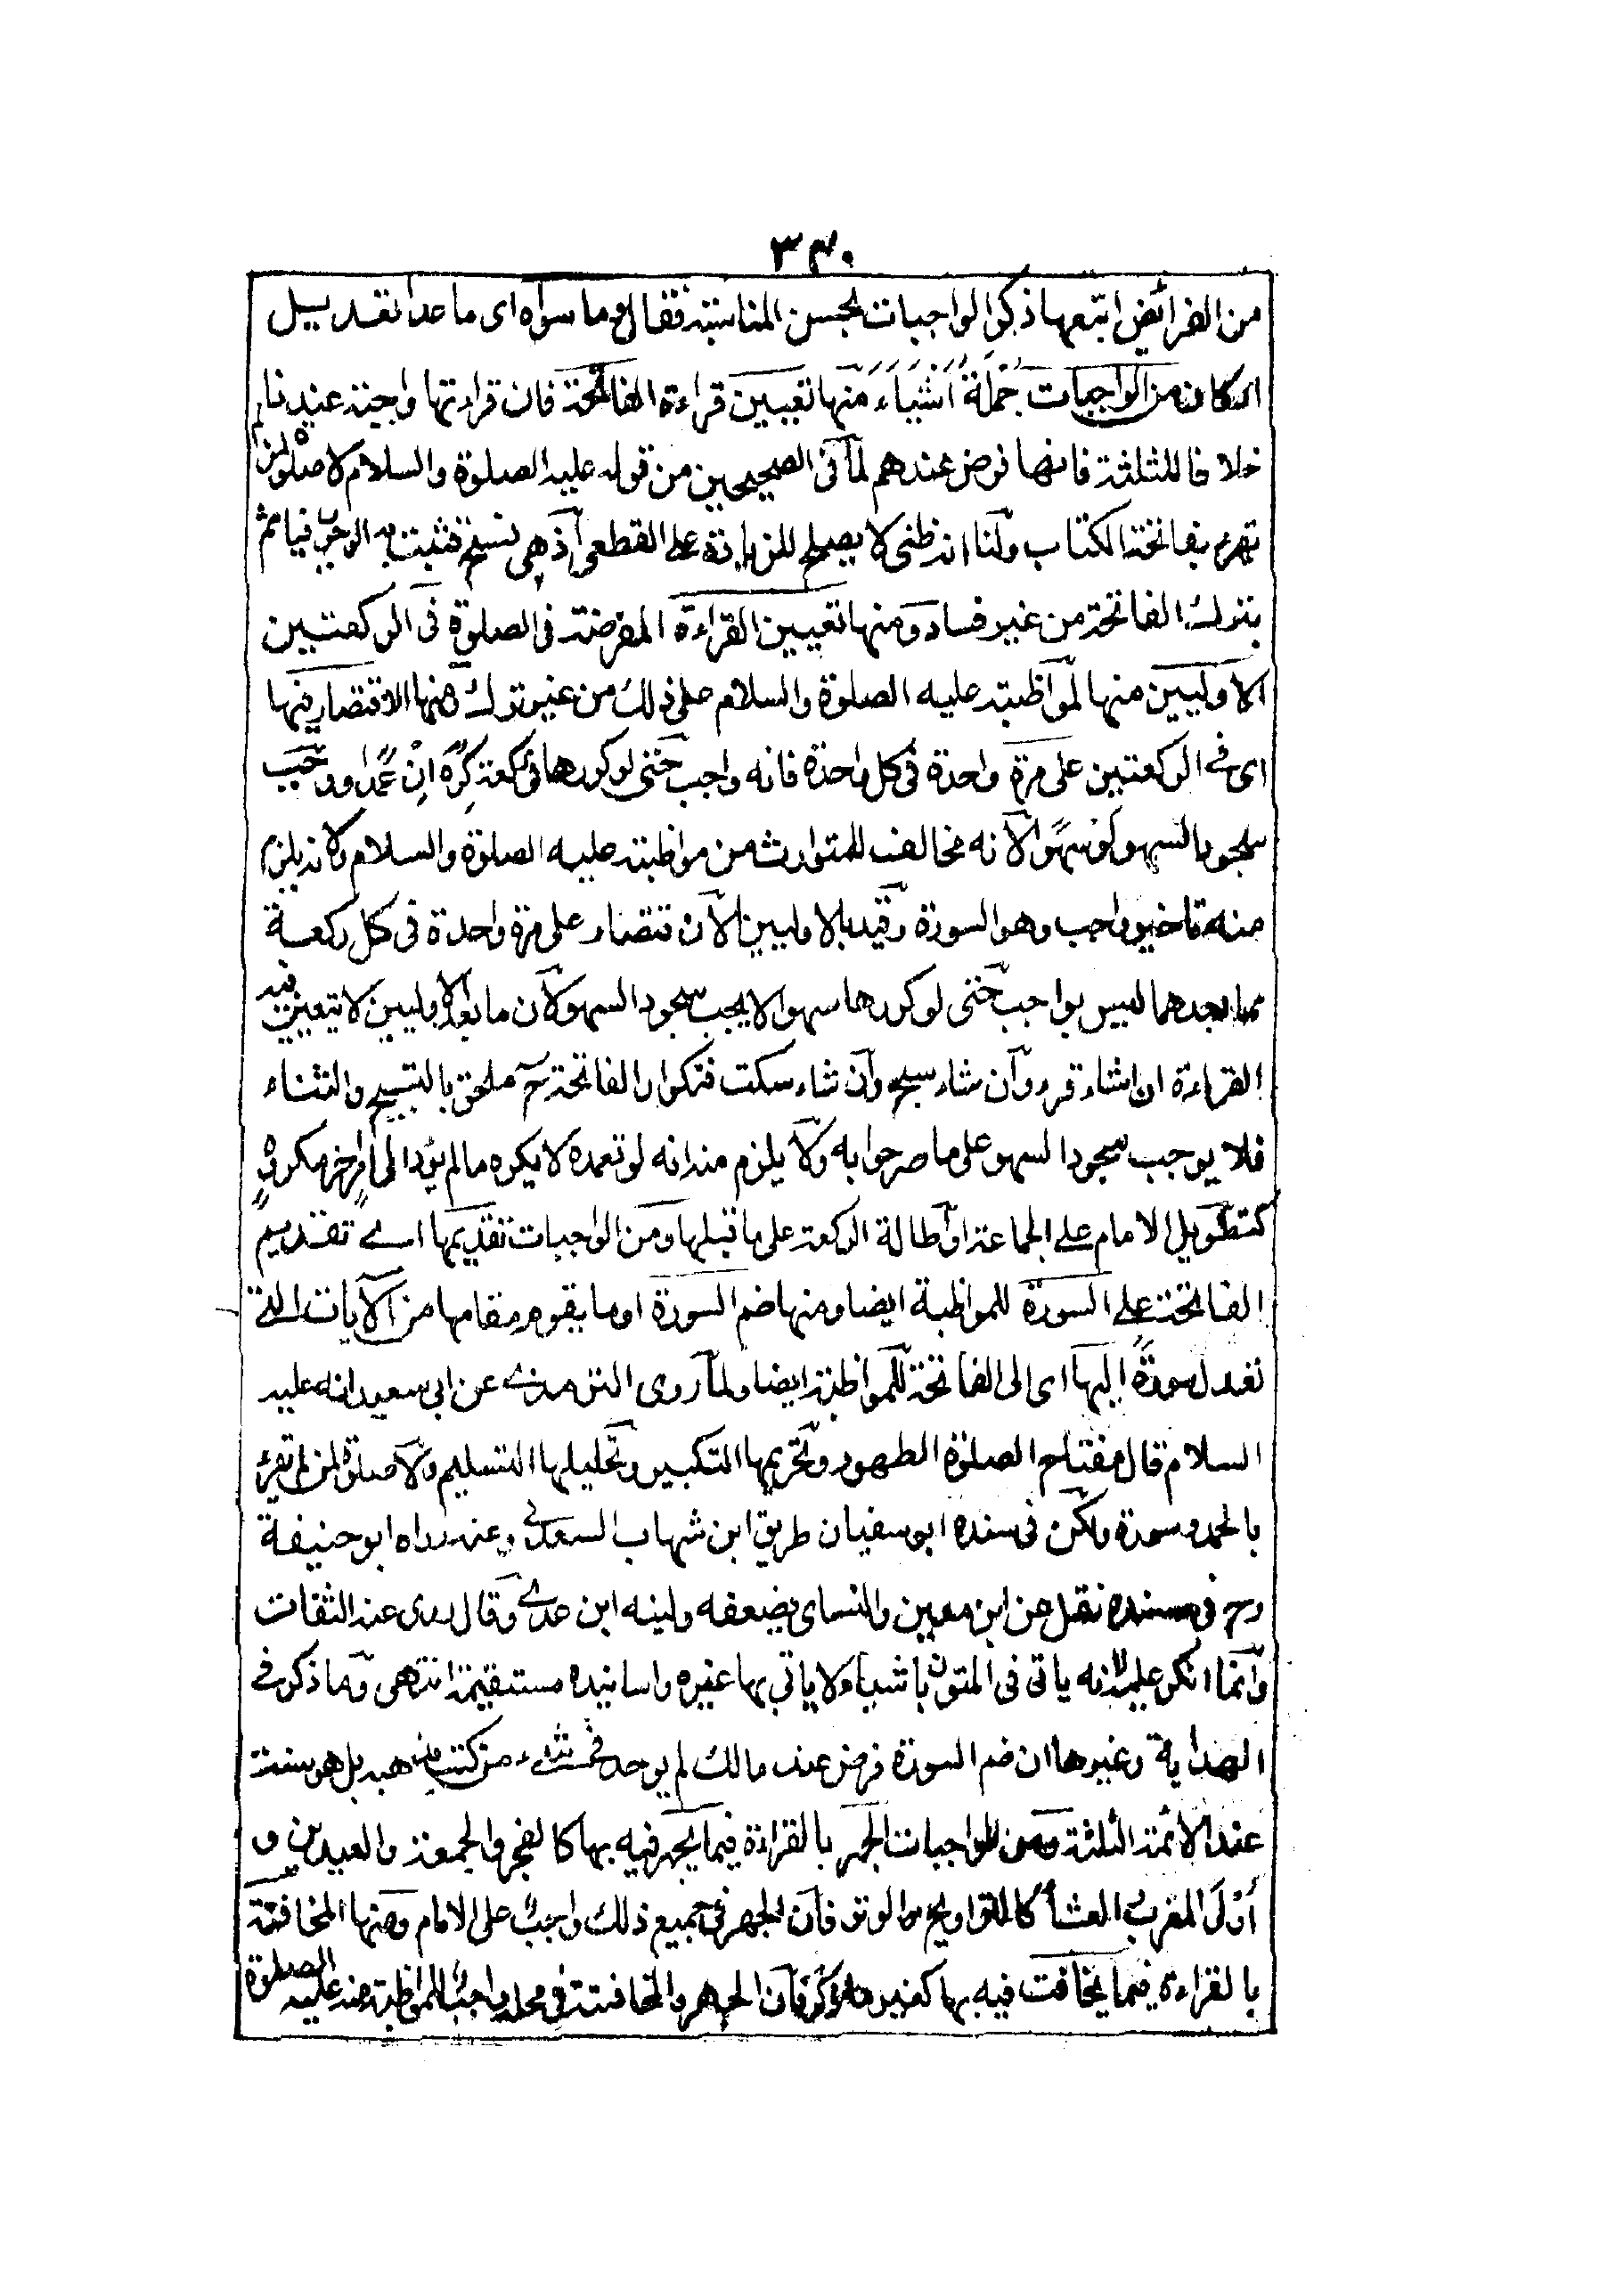 ٣٣٠
من الفرائض اتبعها ذكر الواجبات لحسن المناسبة فقال وما سواه اى ما عدا تعديل
الاركان من الواجبات جُملَةُ اَشْيَاءَ منها تعيين قراءة الفاتحة فان قراءتها واجبة عندنا
خلافا للثلثة فانها فرض عندهم لما فى الصحيحين من قوله عليه الصلوة والسلام لا صلوة لمن لم
يقرء بفاتحة الكتاب ولنا انه ظنى لا يصلح للزيادة على القطعى اذ هى نسخ فثبت به الوجوب فيأثم
بترك الفاتحة من غير فساد ومنها تعيين القراءة المفرضة فى الصلوة فى الركعتين
الاوليين منها لمواظبته عليه الصلوة والسلام على ذلك من غير ترك ومنها الاقتصار فيها
اى فى الركعتين على مرة واحدة فى كل واحدة فانه واجب حتى لو كررها فى ركعة كُرِه انْ عمدًا ووجب
سجود السهو لو سهوًا لانه مخالف للمتوارث من مواظبته عليه الصلوة والسلام ولانه يلزم
منه تاخير واجب وهو السورة وقيد بالاوليين لان الاقتصار على مرة واحدة فى كل ركعة
مما بعدهما ليس بواجب حتى لو كررها سهوا لا يجب سجود السهو لان ما بعد الاوليين لا يتعين فيه
القراءة ان شاء قرء وان شاء سبح وان شاء سكت فتكرار الفاتحة ح ملحق بالتسبيح والثناء
فلا يوجب سجود السهو على ما صرحوا به ولا يلزم منه انه لو تعمده لا يكره ما لم يؤد الى امرٍ اخر مكروهٍ
كتطويل الامام على الجماعة او اطالة الركعة على ما قبلها ومن الواجبات تقديمها اى تقديم
الفاتحة على السورة للمواظبة ايضا ومنها ضم السورة او ما يقوم مقامها من الآيات التى
تعدل سورةً اليها اى الى الفاتحة للمواظبة ايضا ولما روى الترمذى عن ابى سعيد انه عليه
السلام قال مفتاح الصلوة الطهور وتحريمها التكبير وتحليلها التسليم ولا صلوة لمن لم يقرء
بالحمد وسورة ولكن فى سنده ابو سفيان طريق ابن شهاب السعدى وعنه رواه ابو حنيفة
رح فى مسنده نقل عن ابن معين والنساى يضعفه ولينه ابن عدى وقال روى عنه الثقات
وانما انكر عليه لانه ياتى فى المتون باشياء لا ياتى بها غيره واسانيده مستقيمة انتهى وما ذكر فى
الهداية وغيرها ان ضم السورة فرض عند مالك لم يوجد فى شىء من كتب مذهبه بل هو سنة
عند الائمة الثلثة ومن الواجبات الجهر بالقراءة فيما يجهر فيه بها كالفجر والجمعة والعيدين و
اُوْلَى المغرب والعشاء كالتراويح والوتر فان الجهر فى جميع ذلك واجب على الامام ومنها المخافتة
بالقراءة فيما يخافت فيه بها كغير ما ذكر فان الجهر والمخافتة فى محله واجب للمواظبة منه عليه الصلوة